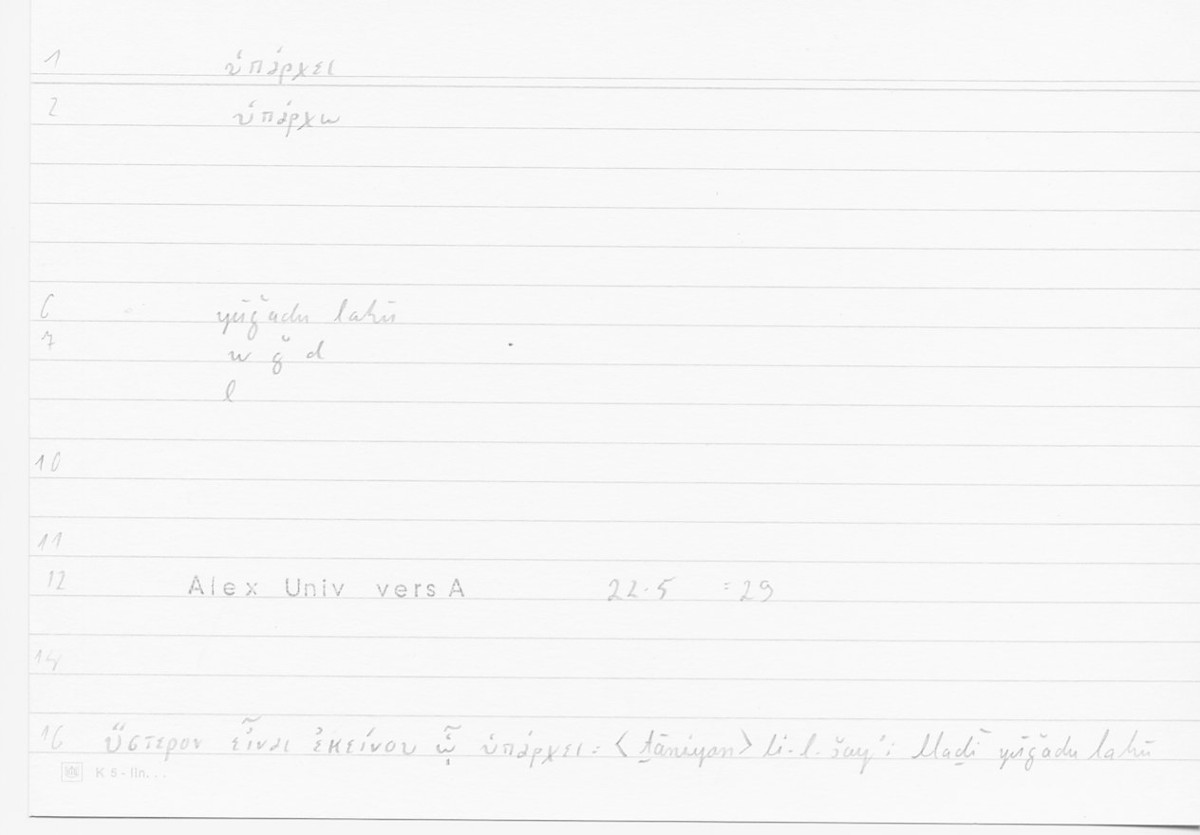 1 ὑπάρχει
2 ὑπάρχω
6 yūǧadu lahū
7 w ǧ d
l
10
11
12 Alex Univ vers A 22.5 =29
14
16 ὕστερον εἶναι ἐκείνου ᾧ ὑπάρχει: &lt;ṯāniyan&gt; li-l-šayʾi llaḏī yūǧadu lahū
K 5-lin...